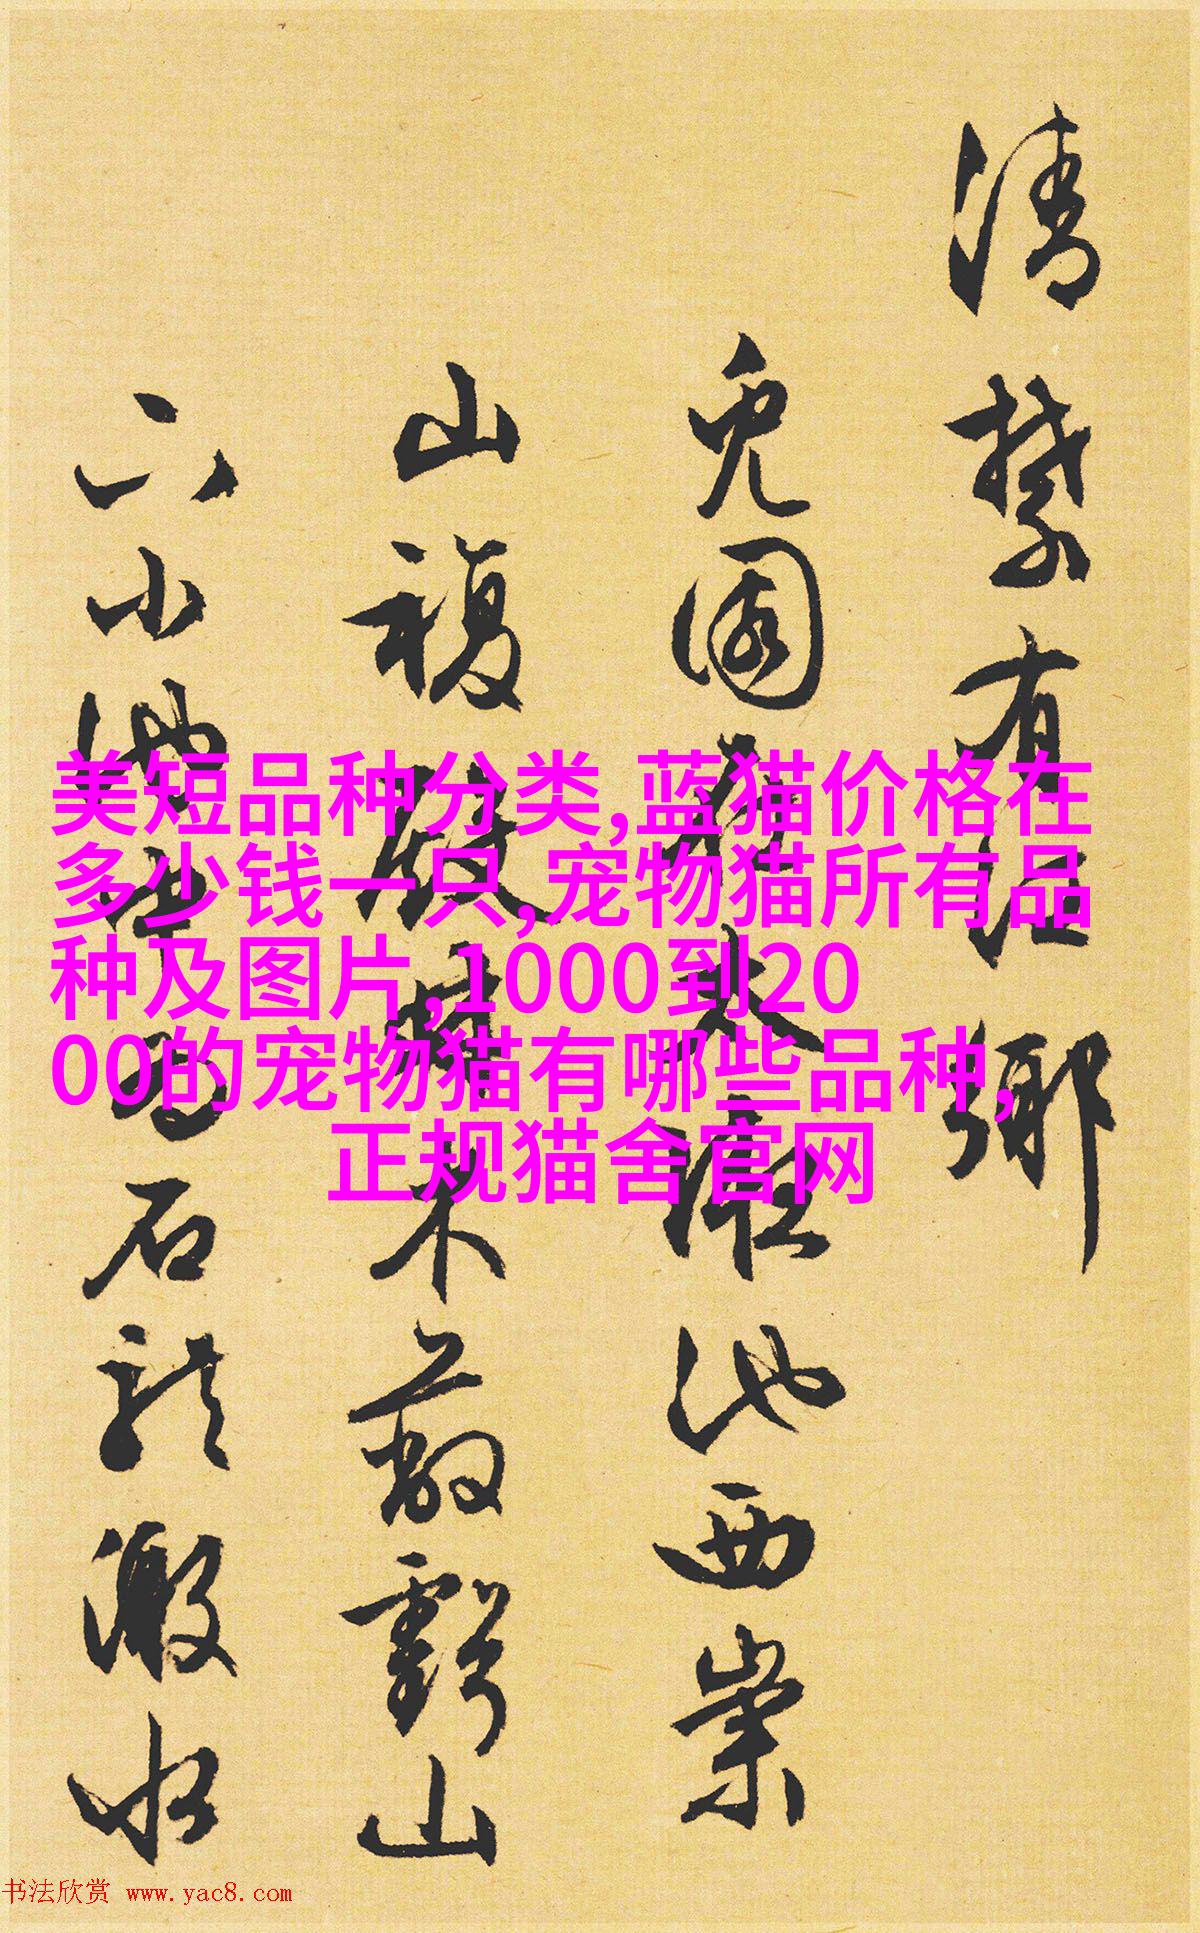 清禁有鄉
兔園太液池西崇
山複殿木蔽虧山
下小池石龍激水
美短品种分类,蓝猫价格在
多少钱一只,宠物猫所有品
种及图片,1000到20
00的宠物猫有哪些品种,
正规猫舍官网
书法欣赏 www.yac8.com